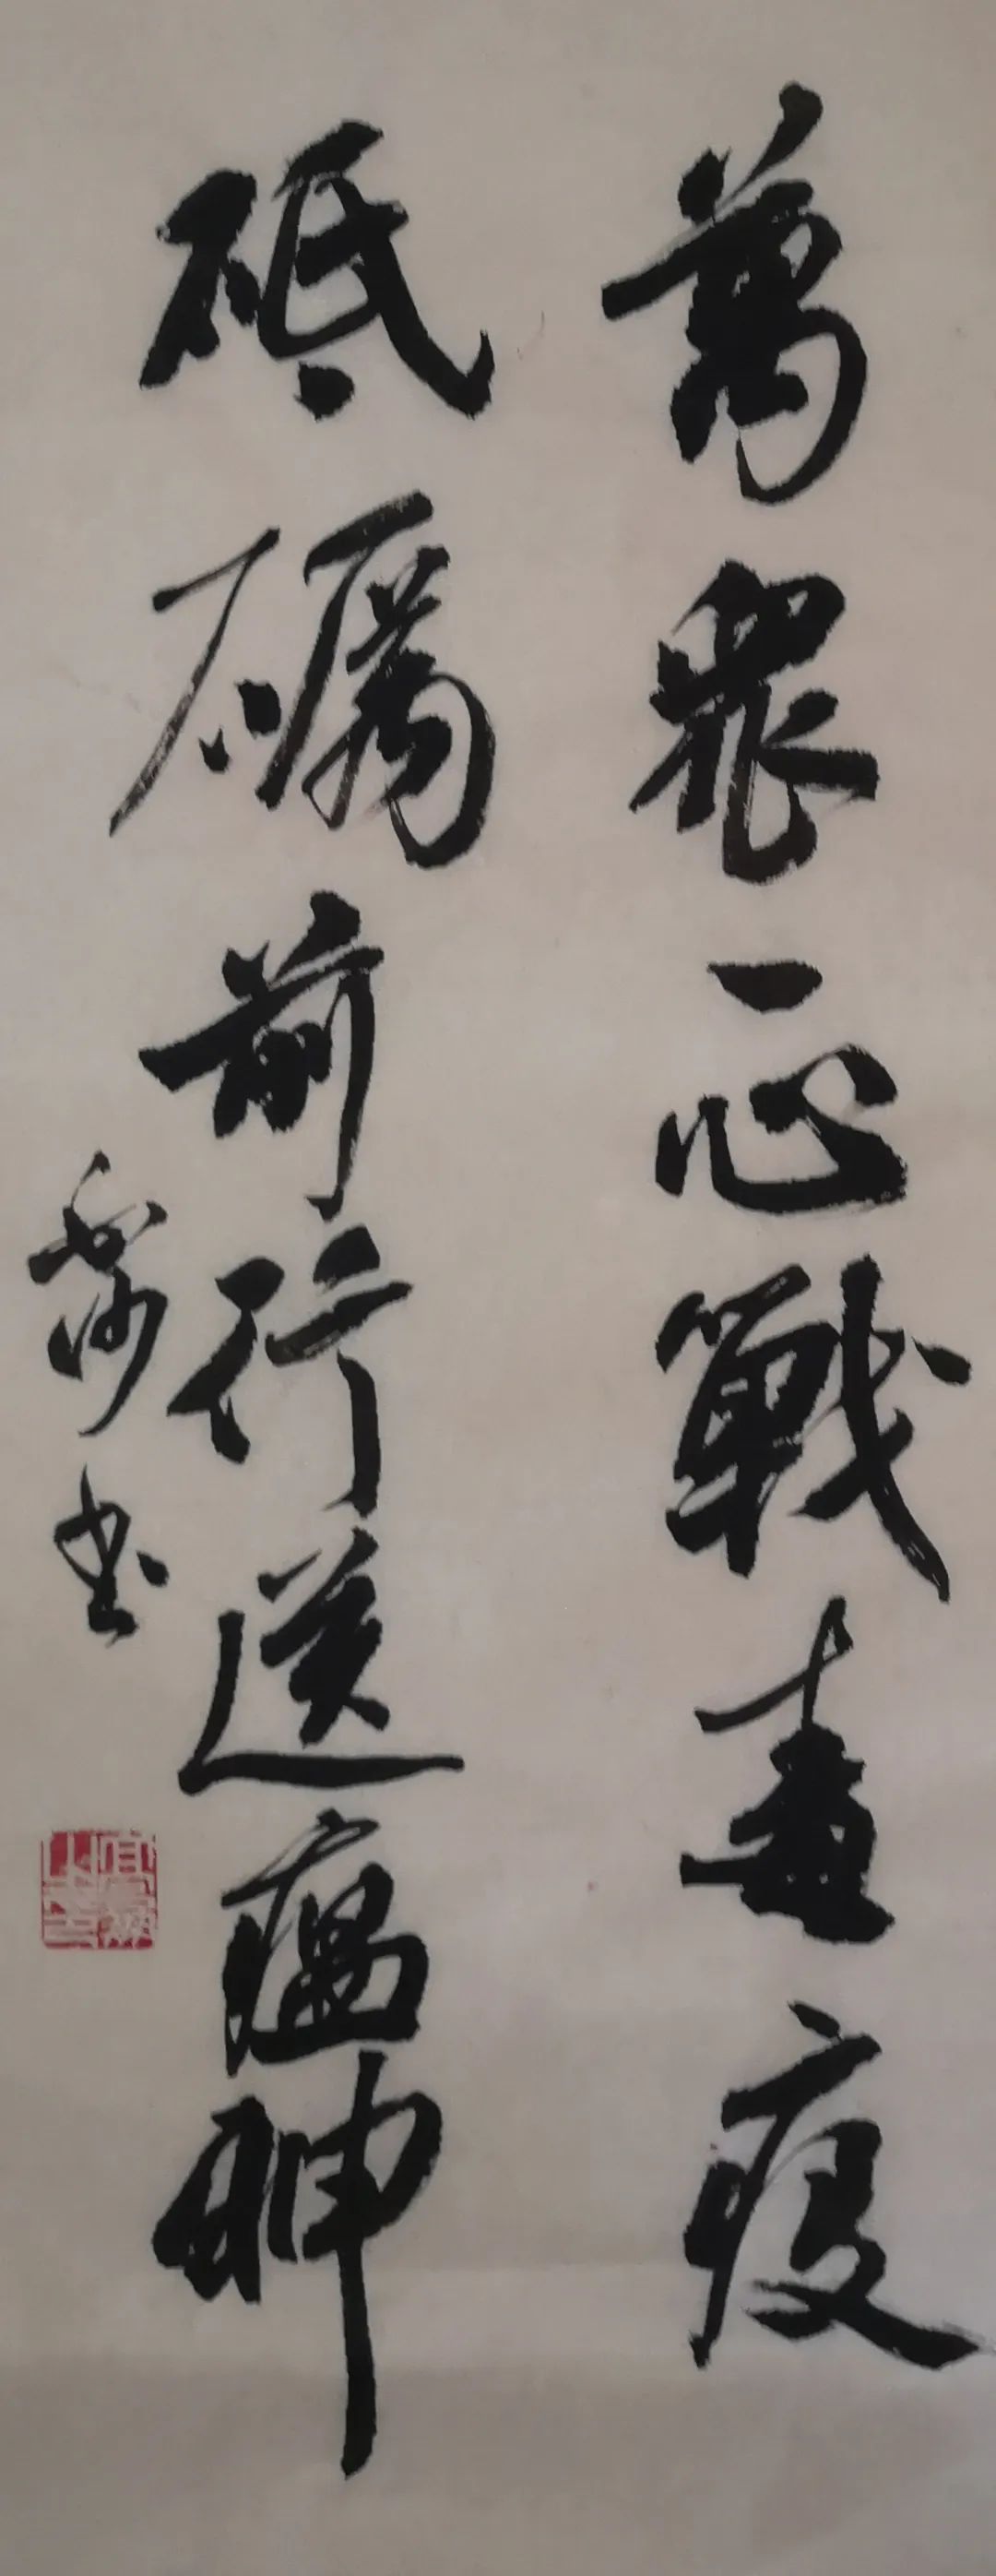 萬眾一心戰毒疫
砥礪前行送瘟神
書